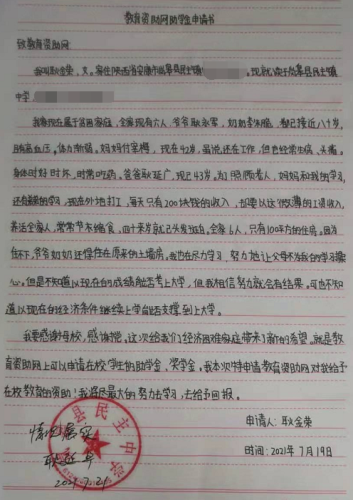 教育资助网助学金申请书
致教育资助网
我叫耿金荣，女。家住陕西省安康市岚皋县民主镇
现就读于岚皋县民主镇
中学，
我家现在属于贫困家庭，全家现有六人，爷爷耿永军，奶奶李，都已接近八十岁，
患有高血压。体力渐弱，妈妈付家梅，现在42岁，虽说还在工作，但也经常生病，头痛。
身体时好时坏，时常吃药。爸爸耿延广，现已43岁。为了照顾老人，妈妈和我的学习，
还有的学习，现在外地打工，每天只有200块钱的收入，却要以这微薄的工资收入，
养活全家人，常常节衣缩食，四十来岁就已头发斑白，全家6人，只有100平方的住房，因为
住不下，爷爷奶奶还得住在原来的土墙房，我也在尽力学习，努力地让父母不为我的学习操
心。但是不知道以现在的成绩能否考上大学，但我相信努力就会有结果。可也不知
道以现在的经济条件继续上学能否支撑到上大学。
我要感谢母校，感谢您，这次给我们经济困难家庭带来了新的希望。就是教
育资助网上可以申请在校学生的助学金，奖学金。我本次特申请教育资助网对我给予
在校教育的资助！我将尽最大的努力去学习，去给予回报。
县民主中学
情况属实
申请人：耿金荣
耿延平
时间：2021年7月19日
2021.7.21